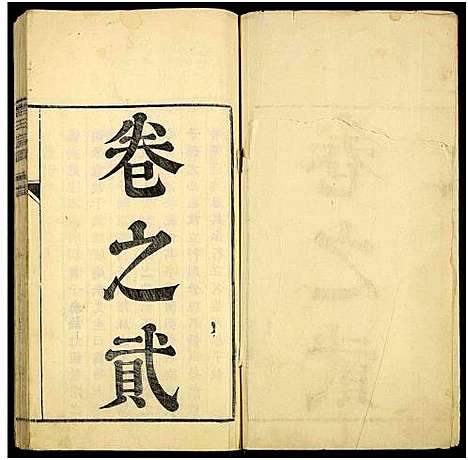 卷之貳